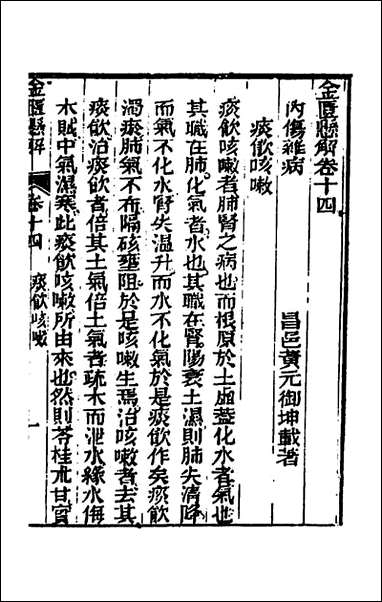 金匱懸解卷十四
昌邑黃元御坤載著
內傷雜病
痰飲咳嗽
痰飲咳嗽者肺腎之病也而根原於土虛蓋化水者氣也
其職在肺化氣者水也其職在腎陽衰土濕則肺失清降
而氣不化水腎失溫升而水不化氣於是痰飲作矣痰飲
濁瘀肺氣不布隔礙壅阻於是咳嗽生焉治咳嗽者去其
痰飲治痰飲者倍其土氣倍土氣者疏木而泄水緣水侮
木賊中氣濕寒此痰飲咳嗽所由來也然則苓桂朮甘官
金匱懸解
卷十四
痰飲咳嗽
一